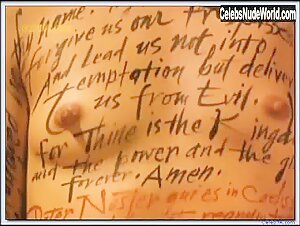 CelebsNudeWorld.com
name.
forgive us our Tres
And Lead us not into
Temptation but deliver
us from Evil.
for Thine is the Kingdo
and the Power and the gl
forever. Amen.
Pater Noster qui es in Coelis